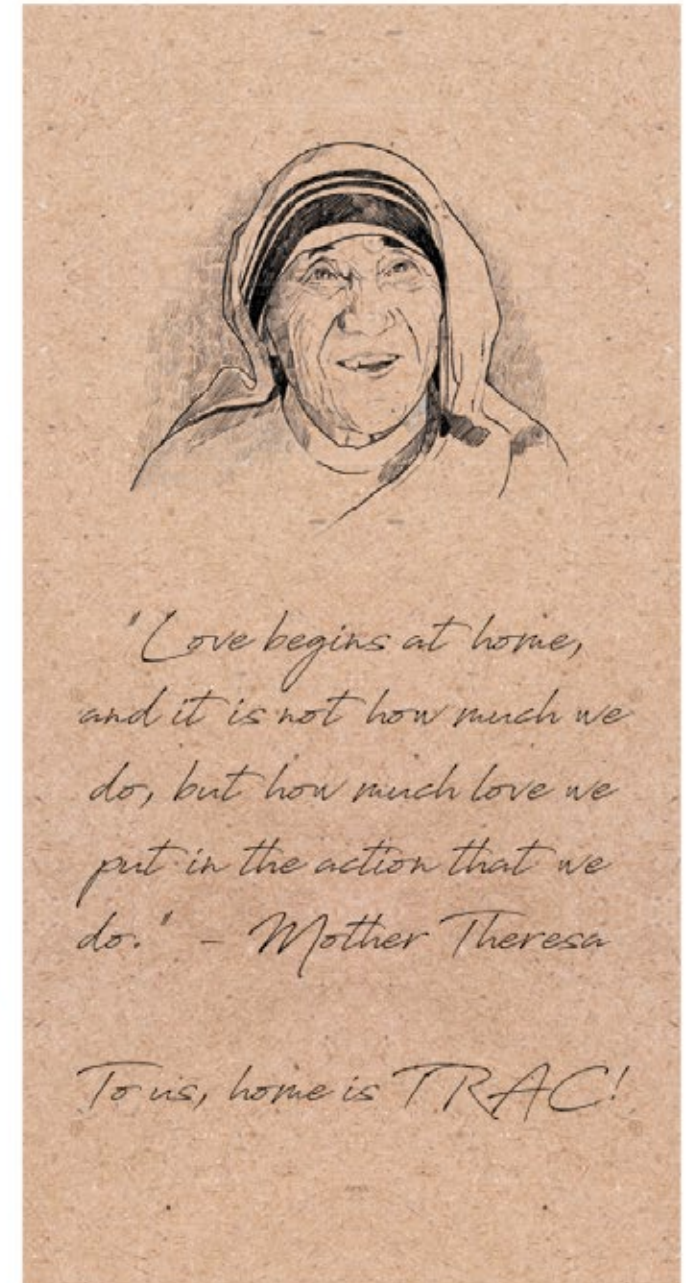 "Love begins at home,
and it is not how much we
do, but how much love we
put in the action that we
do." - Mother Theresa
To us, home is TRAC!